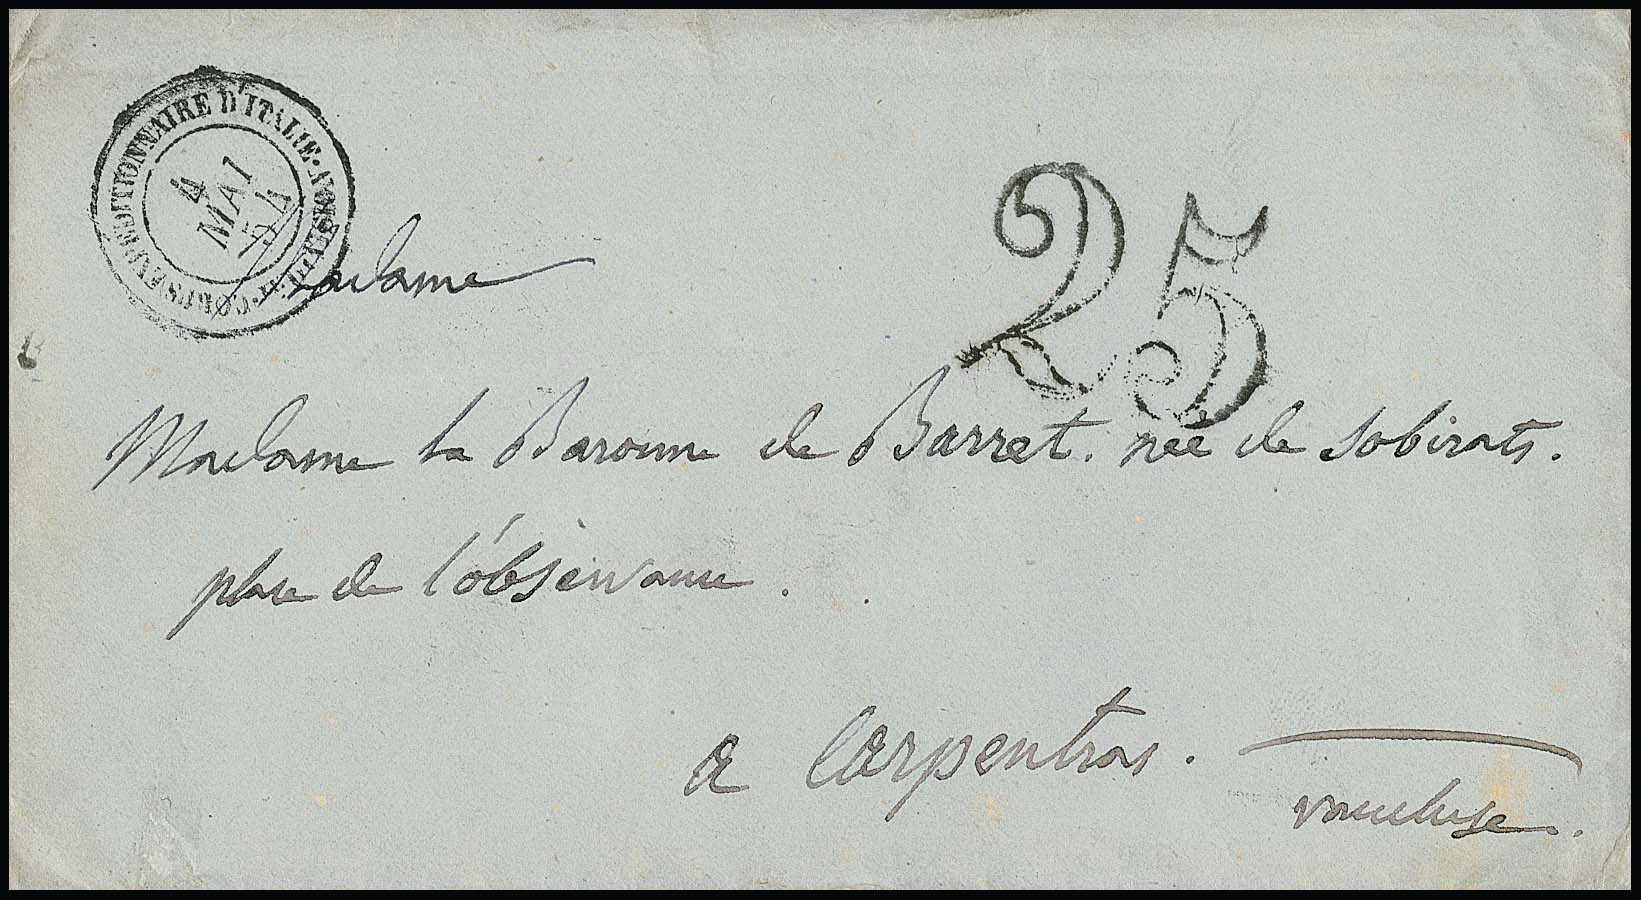 CORPS EXPEDITIONNAIRE D'ITALIE
4
MAI
54
25
Madame
Madame la Baronne de Barret. née de Sobirats.
place de l'observance.
a Carpentras.
vaucluse.